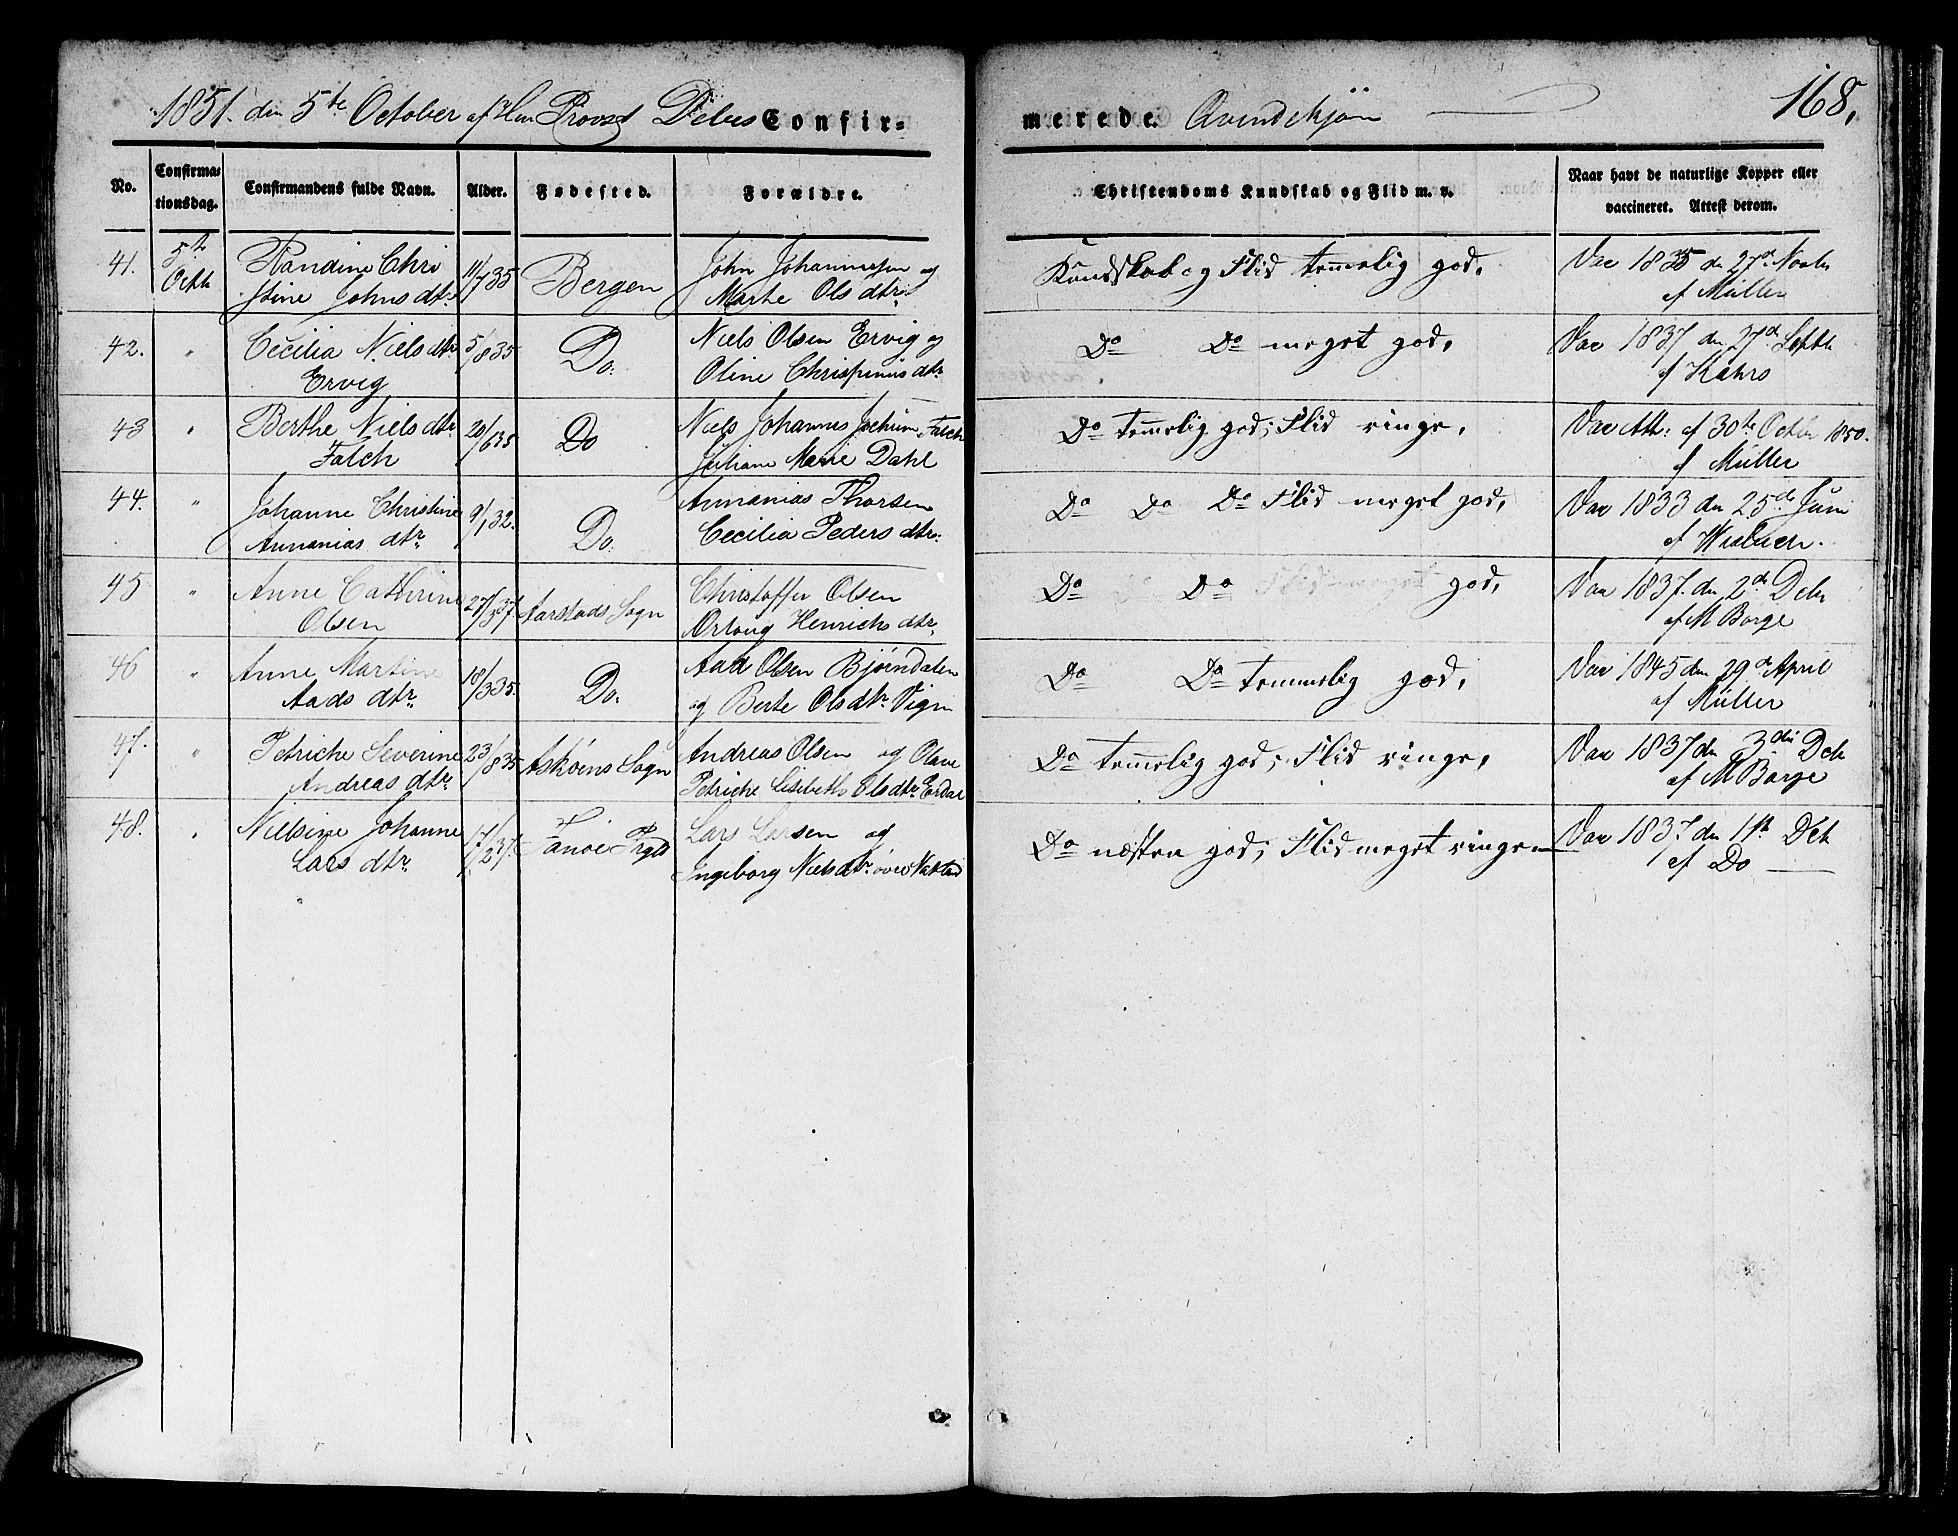 1851. den 5te October af Hrr Provst Delus Confir-
No. Confirma-tionsdag. Confirmandens fulde Navn. Alder. Fødested. Forældre.
41. 5te Octb Randine Chri 11/7 35 Bergen John Johannesen og
stine Johns dtr Marthe Ols dtr
42. " Cecilia Niels dtr 5/8 35 Do. Niels Olsen Ervig og
Ervig Oline Chrispinus dtr
43 " Berthe Niels dtr 20/6 35 Do Niels Johannes Jochum Falch
Falch Juliane Marie Dahl
44. " Johanne Christine 9/1 32. Do. Annanias Thorsen
Annanias dtr. Cecilia Peders dtr.
45 " Anne Cathrine 27/ 37. Aarstads Sogn Christoffer Olsen
Olsen Henrichs dtr.
46 " Anne Martine 10/3 35. Do. Aad Olsen Bjørndalen
Aads dtr. og Berte Ols dtr. Vigen
47. " Petriche Severine 23/8 35 Askøens Sogn Andreas Olsen og Olave
Andreas dtr. Petriche Lisibeth Ols dtr. Erdal
48. " Nielsine Johanne 17/2 37. Fanøe Prgld Lars Larsen og
Lars dtr. Ingeborg Niels dtr. øvre Natland
merede. Qvindekjøn 168.
Christendoms Kundskab og Flid m. v. Naar havt de naturlige Kopper eller
vaccineret. Attest derom.
Kundskab og Flid temmelig god. Vac 1835 den 27de Novbr
af Müller
Do Do meget god. Vac 1837 den 27de Septb
af Kahrs
Do temmelig god; Flid ringe. Vac Att: af 30te Octbr 1850.
af Müller
Do Do Do Flid meget god. Vac 1833 den 25de Juni
af Wisbech.
Do Do Flid meget god. Vac 1837. den 2de Dcbr
af M Borge
Do Do temmelig god. Vac 1845 den 29de April
af Müller
Do temmelig god; Flid ringe. Vac 1837 den 3die Dcb
af M Borge
Do næsten god; Flid meget ringe Vac 1837. den 1ste Dcb
af Do